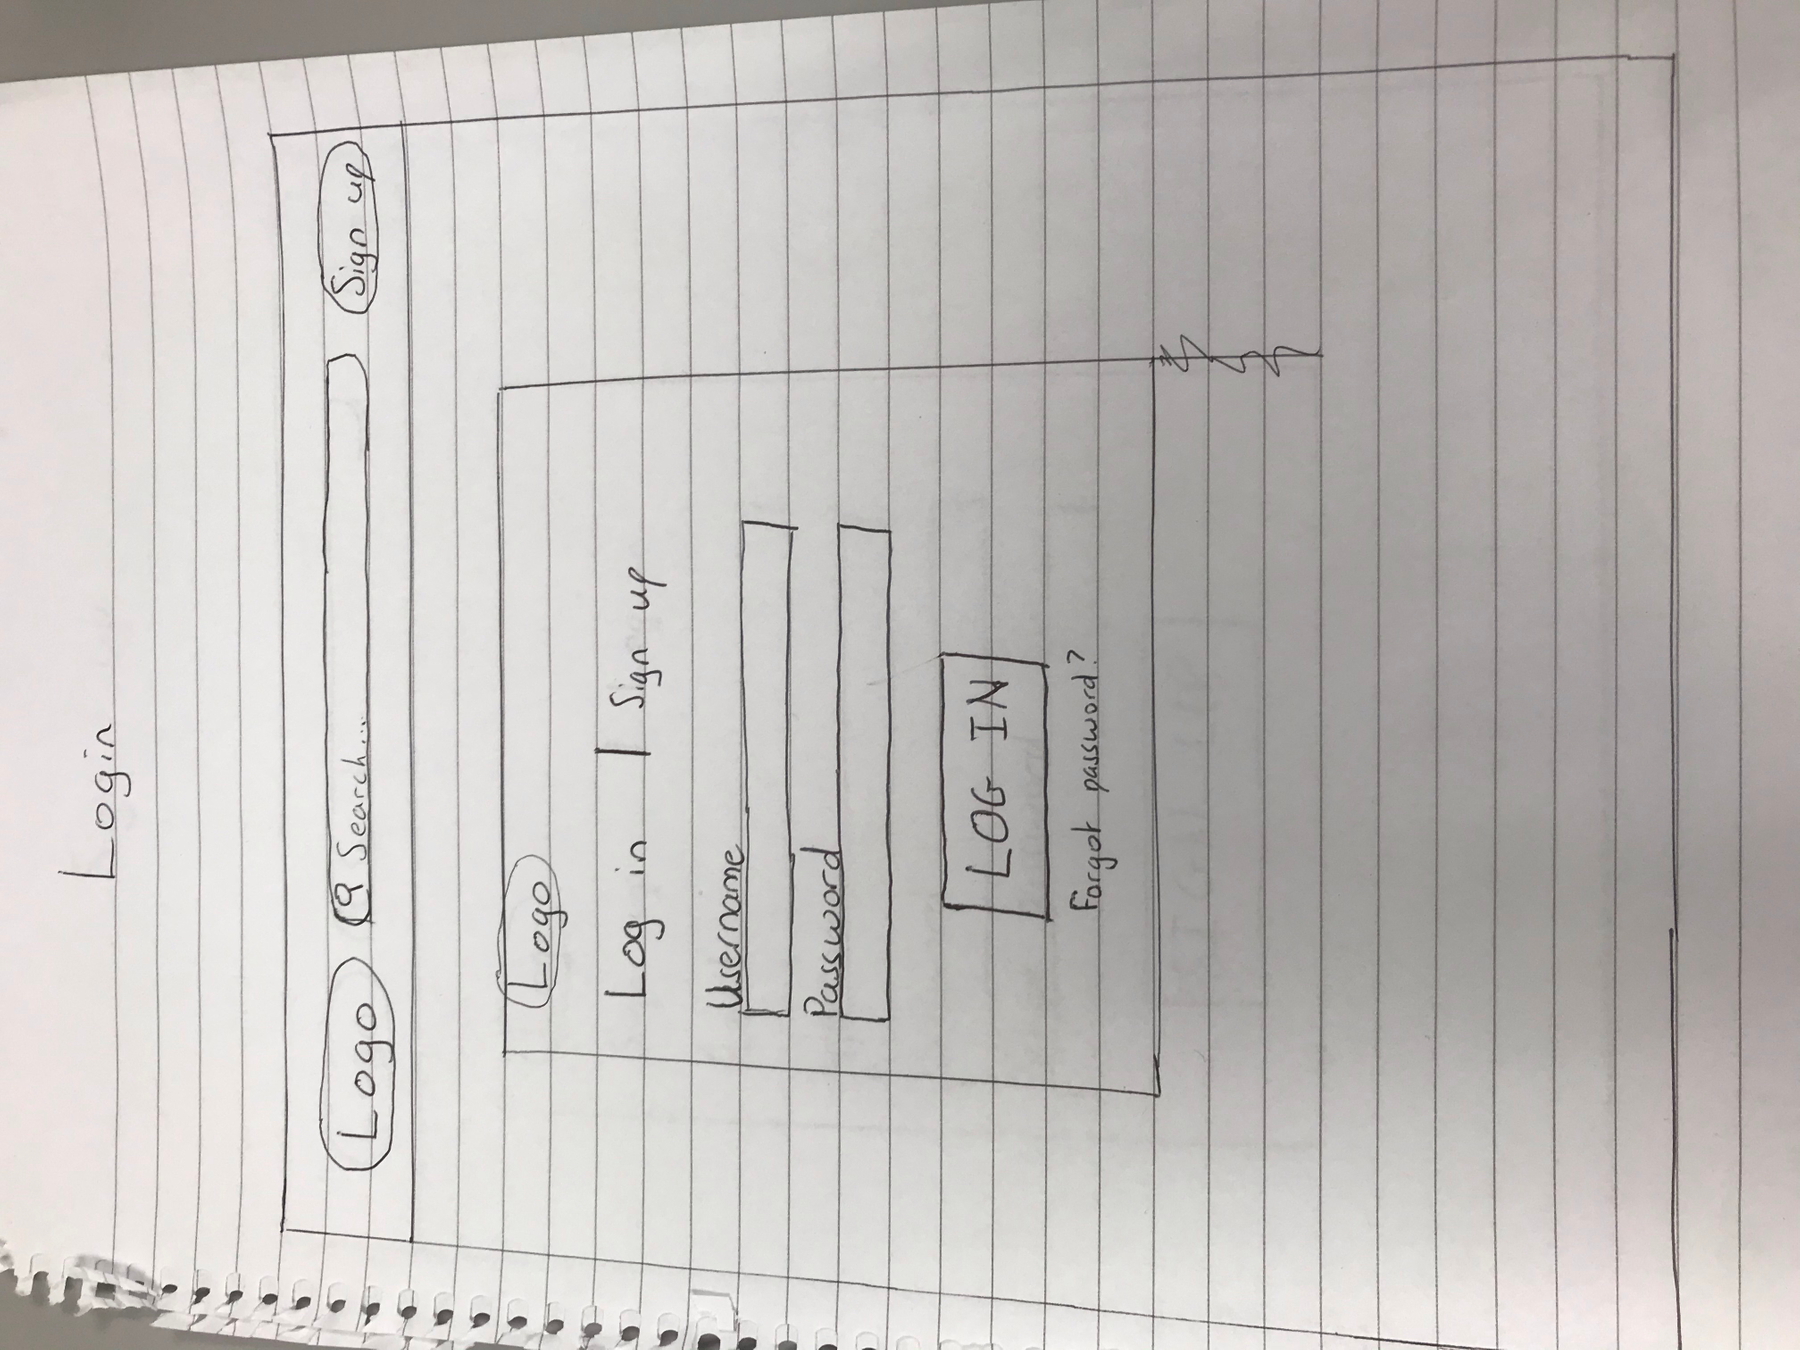 Login
Logo Search.... Sign up
Logo
Log in | Sign up
Username
Password
LOG IN
Forgot password?